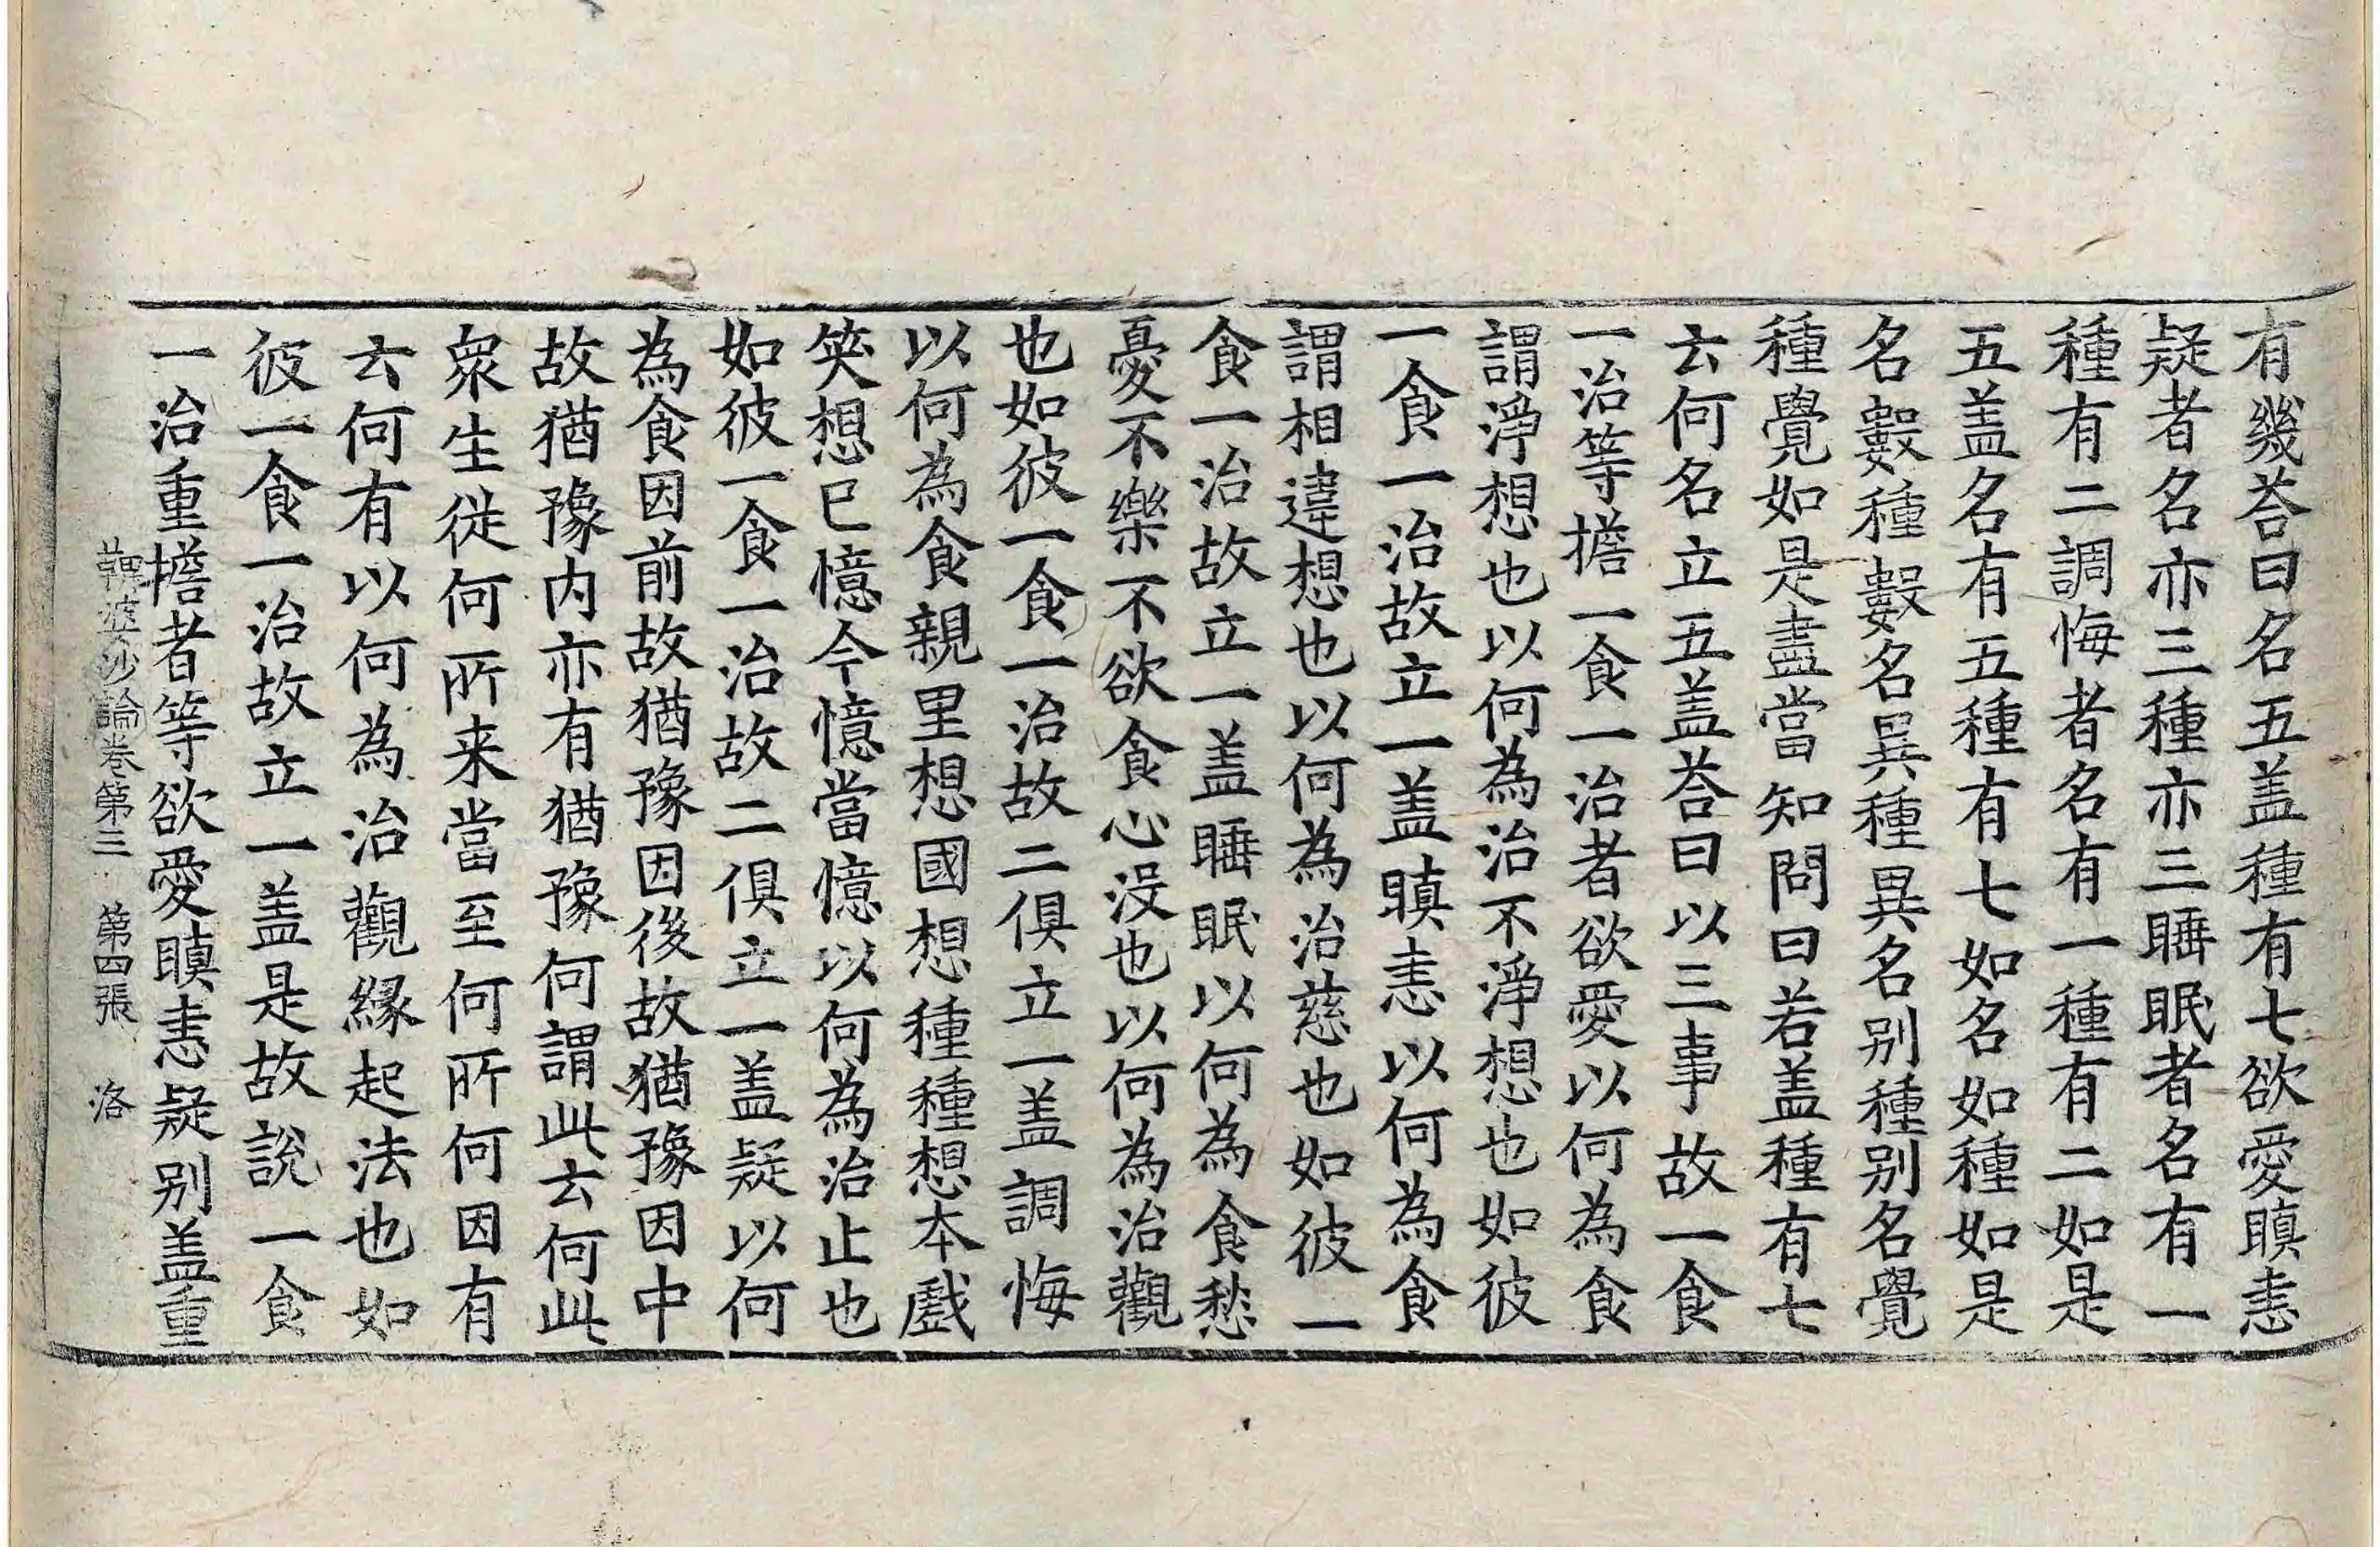 有幾荅曰名五盖種有七欲愛瞋恚
疑者名亦三種亦三睡眠者名有一
種有二調悔者名有一種有二如是
五盖名有五種有七如名如種如是
名數種數名異種異名别種别名覺
種覺如是盡當知問曰若盖種有七
云何名立五盖荅曰以三事故一食
一治等擔一食一治者欲愛以何為食
謂淨想也以何為治不淨想也如彼
一食一治故立一盖瞋恚以何為食
謂相違想也以何為治慈也如彼一
食一治故立一盖睡眠以何為食愁
憂不樂不欲食心没也以何為治觀
也如彼一食一治故二俱立一盖調悔
以何為食親里想國想種種想本戲
笑想已憶今憶當憶以何為治止也
如彼一食一治故二俱立一盖疑以何
為食因前故猶豫因後故猶豫因中
故猶豫内亦有猶豫何謂此云何此
衆生從何所来當至何所何因有
云何有以何為治觀緣起法也如
彼一食一治故立一盖是故說一食
一治重擔者等欲愛瞋恚疑别盖重
鞞婆沙論卷第三 第四張 洛